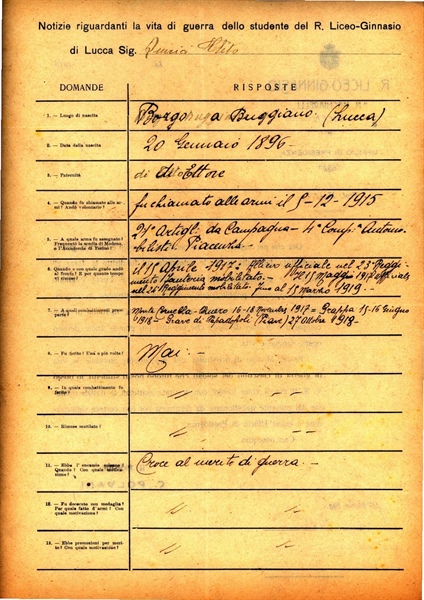 Notizie riguardanti la vita di guerra dello studente del R. Liceo-Ginnasio
di Lucca Sig.
DOMANDE
RISPOSTE
1. - Luogo di nascita
Borgo a Buggiano (Lucca)
2. - Data della nascita
20 Gennaio 1896 -
3. - Paternità
di Ettore
4. - Quando fu chiamato alle armi? Andò volontario?
fu chiamato alle armi il 5-12-1915
5. - A quale arma fu assegnato? Frequentò la scuola di Modena o l'Accademia di Torino?
Artigl. da Campagna - 4ª Comp. Automo-
bilisti - Piacenza -
6. Quando e con quale grado andò al fronte? E per quanto tempo vi rimase?
il 15 Aprile 1917 - ufficiale nel 23º Reggi-
mento Fanteria mobilitato. - 
nel Reggimento mobilitato. fino al 15 Marzo 1919. -
7. - A quali combattimenti prese parte?
Monte - Quero 16-18 Novembre 1917 = Grappa 15-16 Giugno
1918 - Grave di Papadopoli (Piave) 27 Ottobre 1918 -
8. - Fu ferito? Una o più volte?
Mai. -
9. - In quale combattimento fu ferito?
" "
10. - Rimase mutilato?
" "
11. - Ebbe l'encomio Quando? Con quale motivazione?
Croce al merito di guerra. -
12. - Fu decorato con medaglia? Per quale fatto d'armi? Con quale motivazione?
" "
13. - Ebbe promozioni per merito? Con quale motivazione?
" "